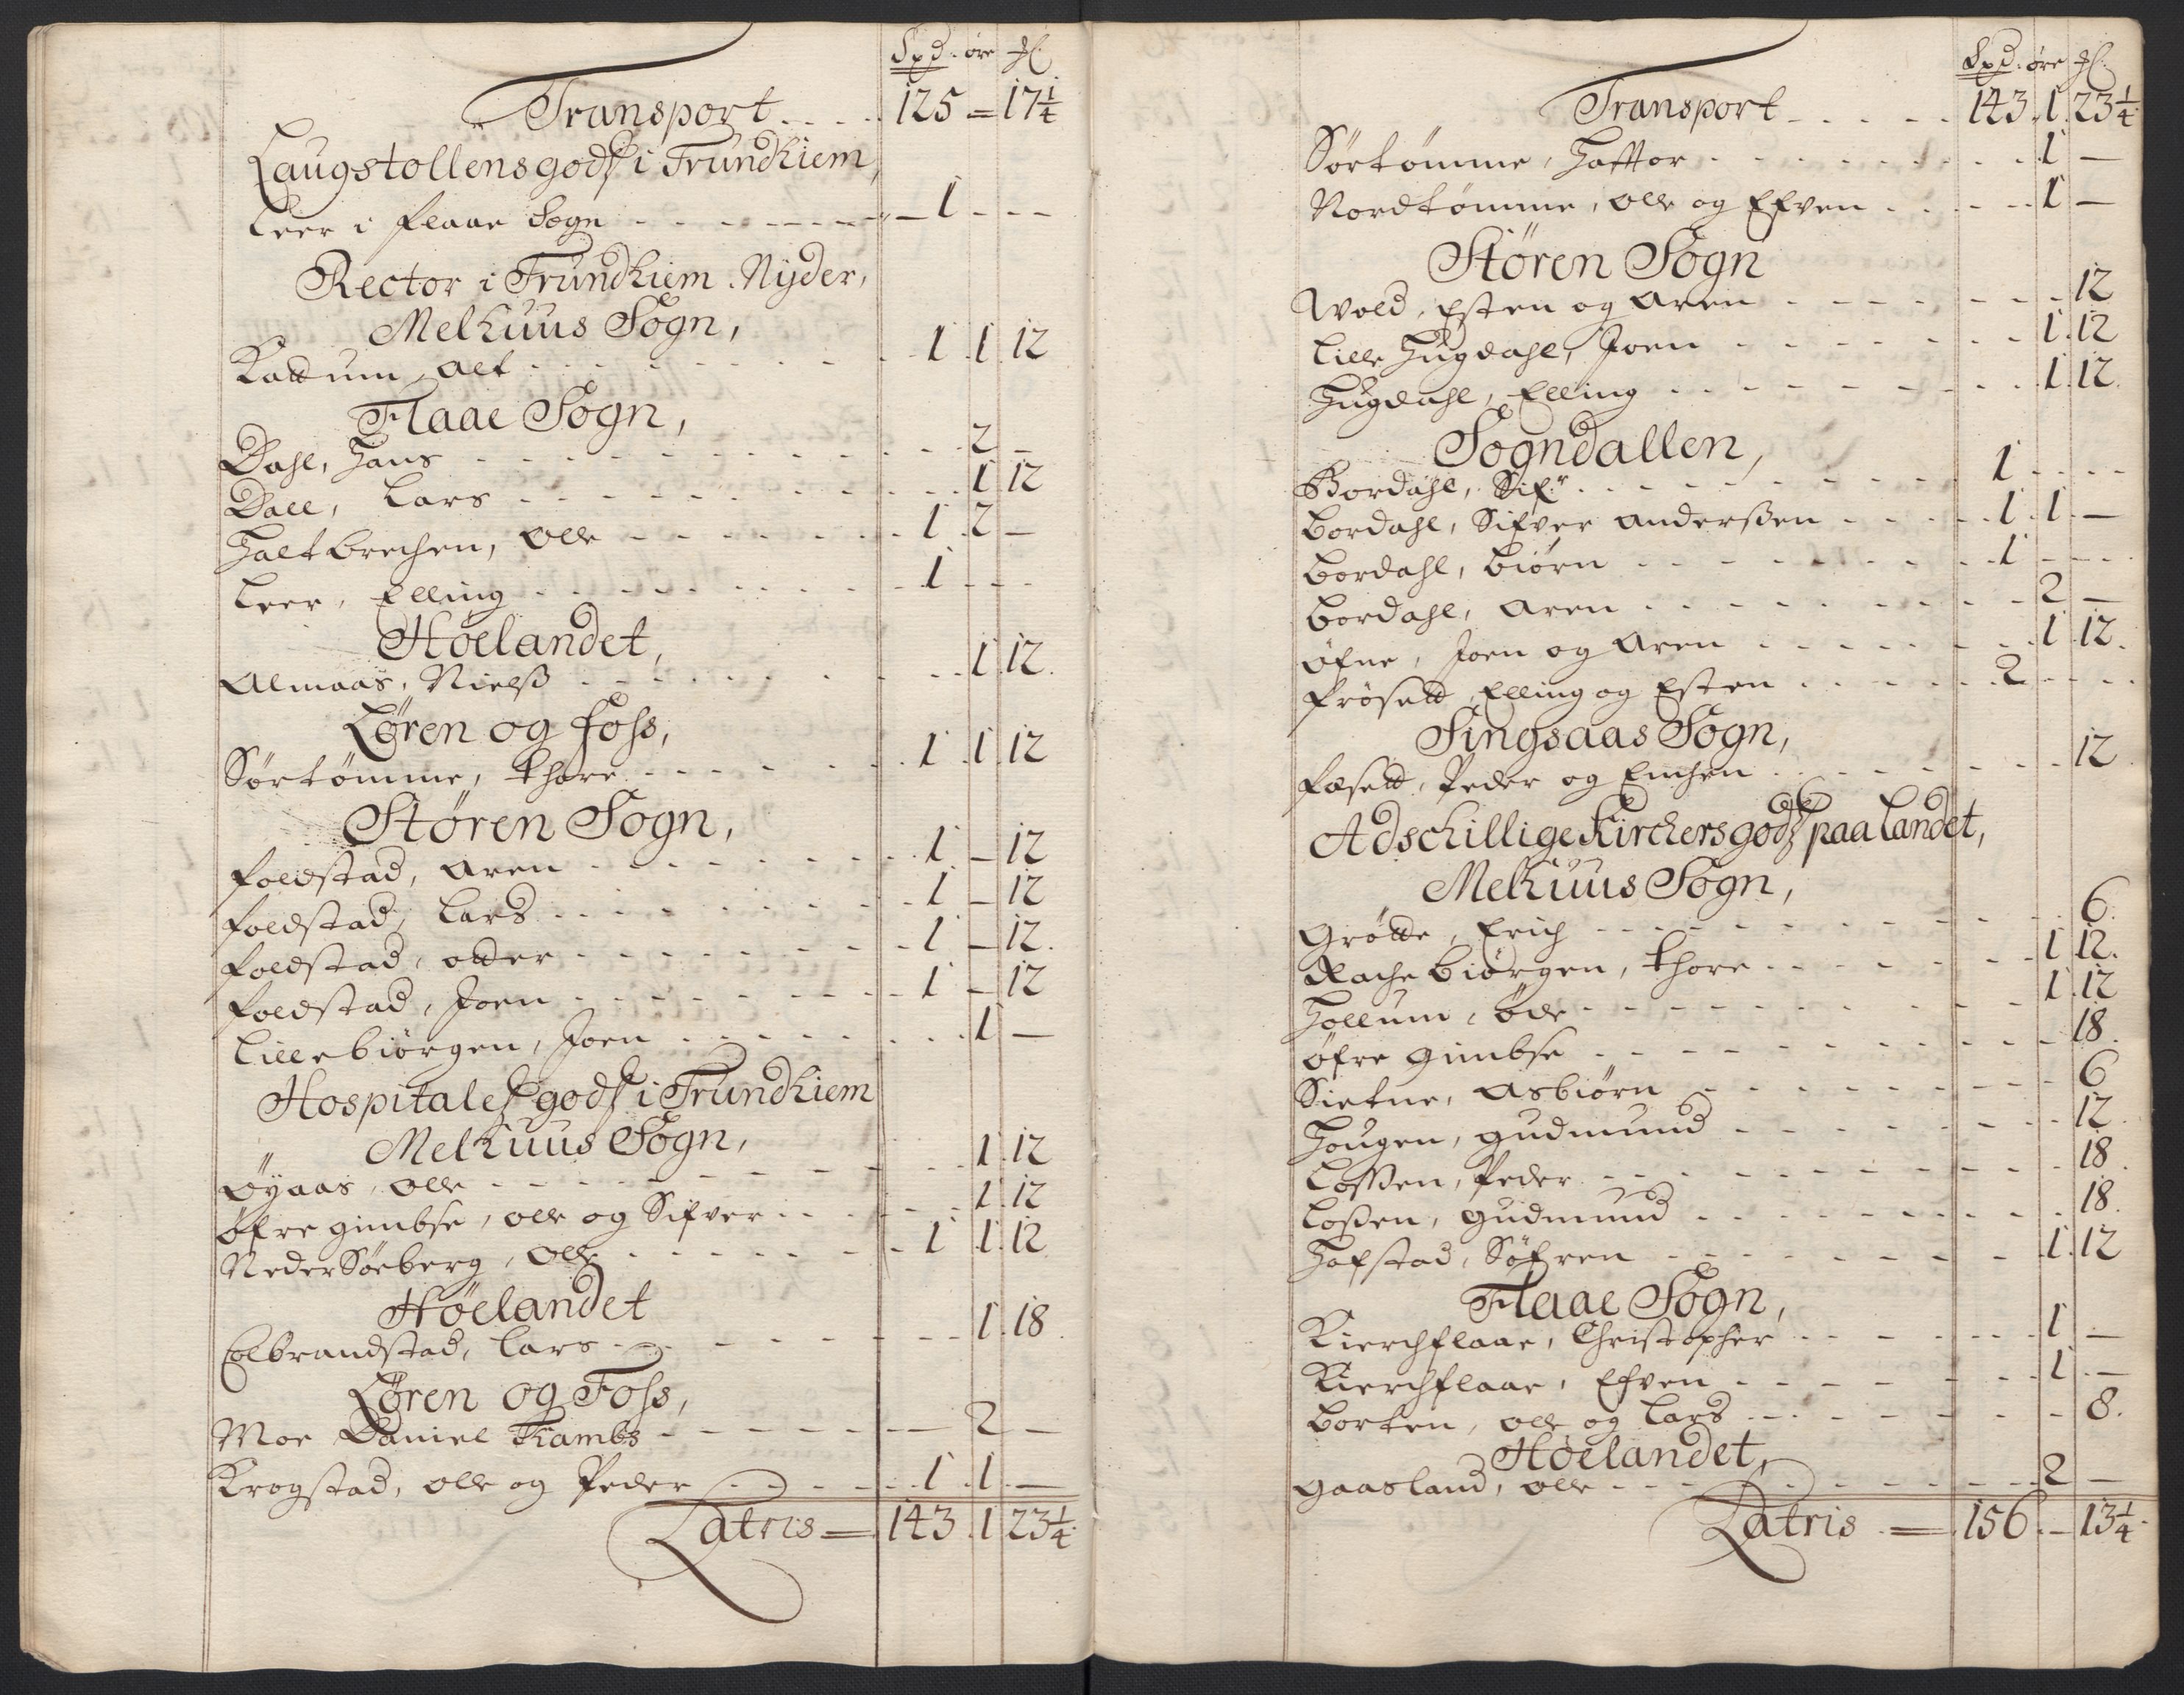 Spd. øre
Transport 125 = 17 1/4
Laugstollens gods i Trundhiem,
Leer i Flaae Sogn – 1 - -
Rector i Trundhiem Nyder,
Melhuus Sogn,
Kattum Alf 1 1 12
Flaae Sogn,
Dahl, Hans 2 –
Dall, Lars 1 12
Haltbrechen, Olle 1 2 –
Leer, Elling 1 - -
Høelandet,
Almaas, Nielß 1 12.
Løren og Foss,
Sørtømme, Thore 1 1 12
Støren Sogn,
Foldstad, Aren 1 – 12
Foldstad, Lars 1 – 12
Foldstad, otter 1 – 12.
Foldstad, Joen 1 – 12
Lillebiørgen, Joen 1 –
Hospitalets gods i Trundhiem
Melhuus Sogn,
Øyaas, Olle 1 12
Øfre Gimbse, Olle og Sifver 1 12
Neder Søeberg, Olle 1 1 12
Høelandet
Colbrandstad, Lars 1 18
Løren og Foss,
Moe Daniel Kambs 2 –
Krogstad, Olle og Peder 1 1 –
Latris = 143 1 23 1/4
Spd. øre
Transport 143 1 23 1/4
Sørtømme, Haftor 1 –
Nordtømme, Olle og Efven 1 –
Støren Sogn
Wold, Esten og Aren 12
Lille Hugdahl, Joen 1 12
Hugdahl, Elling 1 12.
Sogndallen,
Bordahl, Sifr 1 - -
Bordahl, Sifver Anderßen 1 1 –
Bordahl, Biørn 1 - -
Bordahl, Aren 2 –
Øfne, Joen og Aren 1 12.
Frøsett, Elling og Esten 2 - -
Singsaas Sogn,
Fosett, Peder og Emhen 12
Adschillige Kirchers gods paa Landet,
Melhuus Sogn,
Grøtte, Erich 6.
Rachebiørgen, Thore 1 12.
Hollum, øde 1 12
Øfre Gimbse 18.
Sietne, Asbiørn 6
Hougen, Gudmund 12
Loßen, Peder 18.
Loßen, Gudmund 18.
Hofstad, Søfren 1 12
Flaae Sogn,
Kierchflaae, Christopher 1 –
Kierchflaae, Efven 1 –
Borten, Olle og Lars 8.
Høelandet,
Gaasland, Olle 2 –
Latris = 156 – 13 1/4